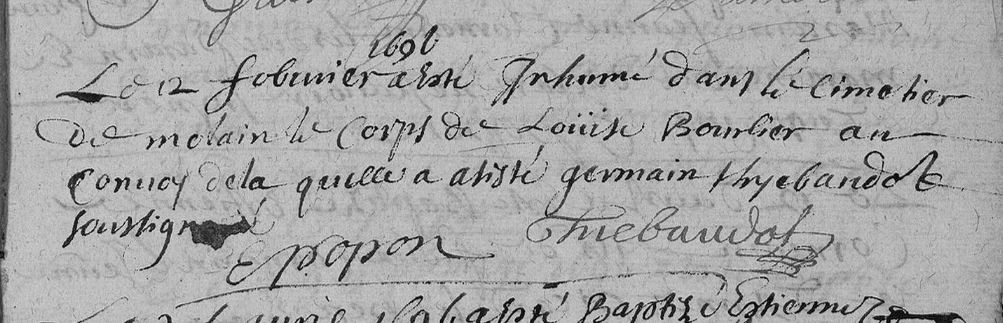 1696
Le 12 febvrier a esté Inhumé dans le Cimetier
De molain le Corps de Loüise Bourlier au
Convoy dela quelle a asisté germain thyebaudot
soussigné
E popon Thiebaudot
Baptisé Estienne